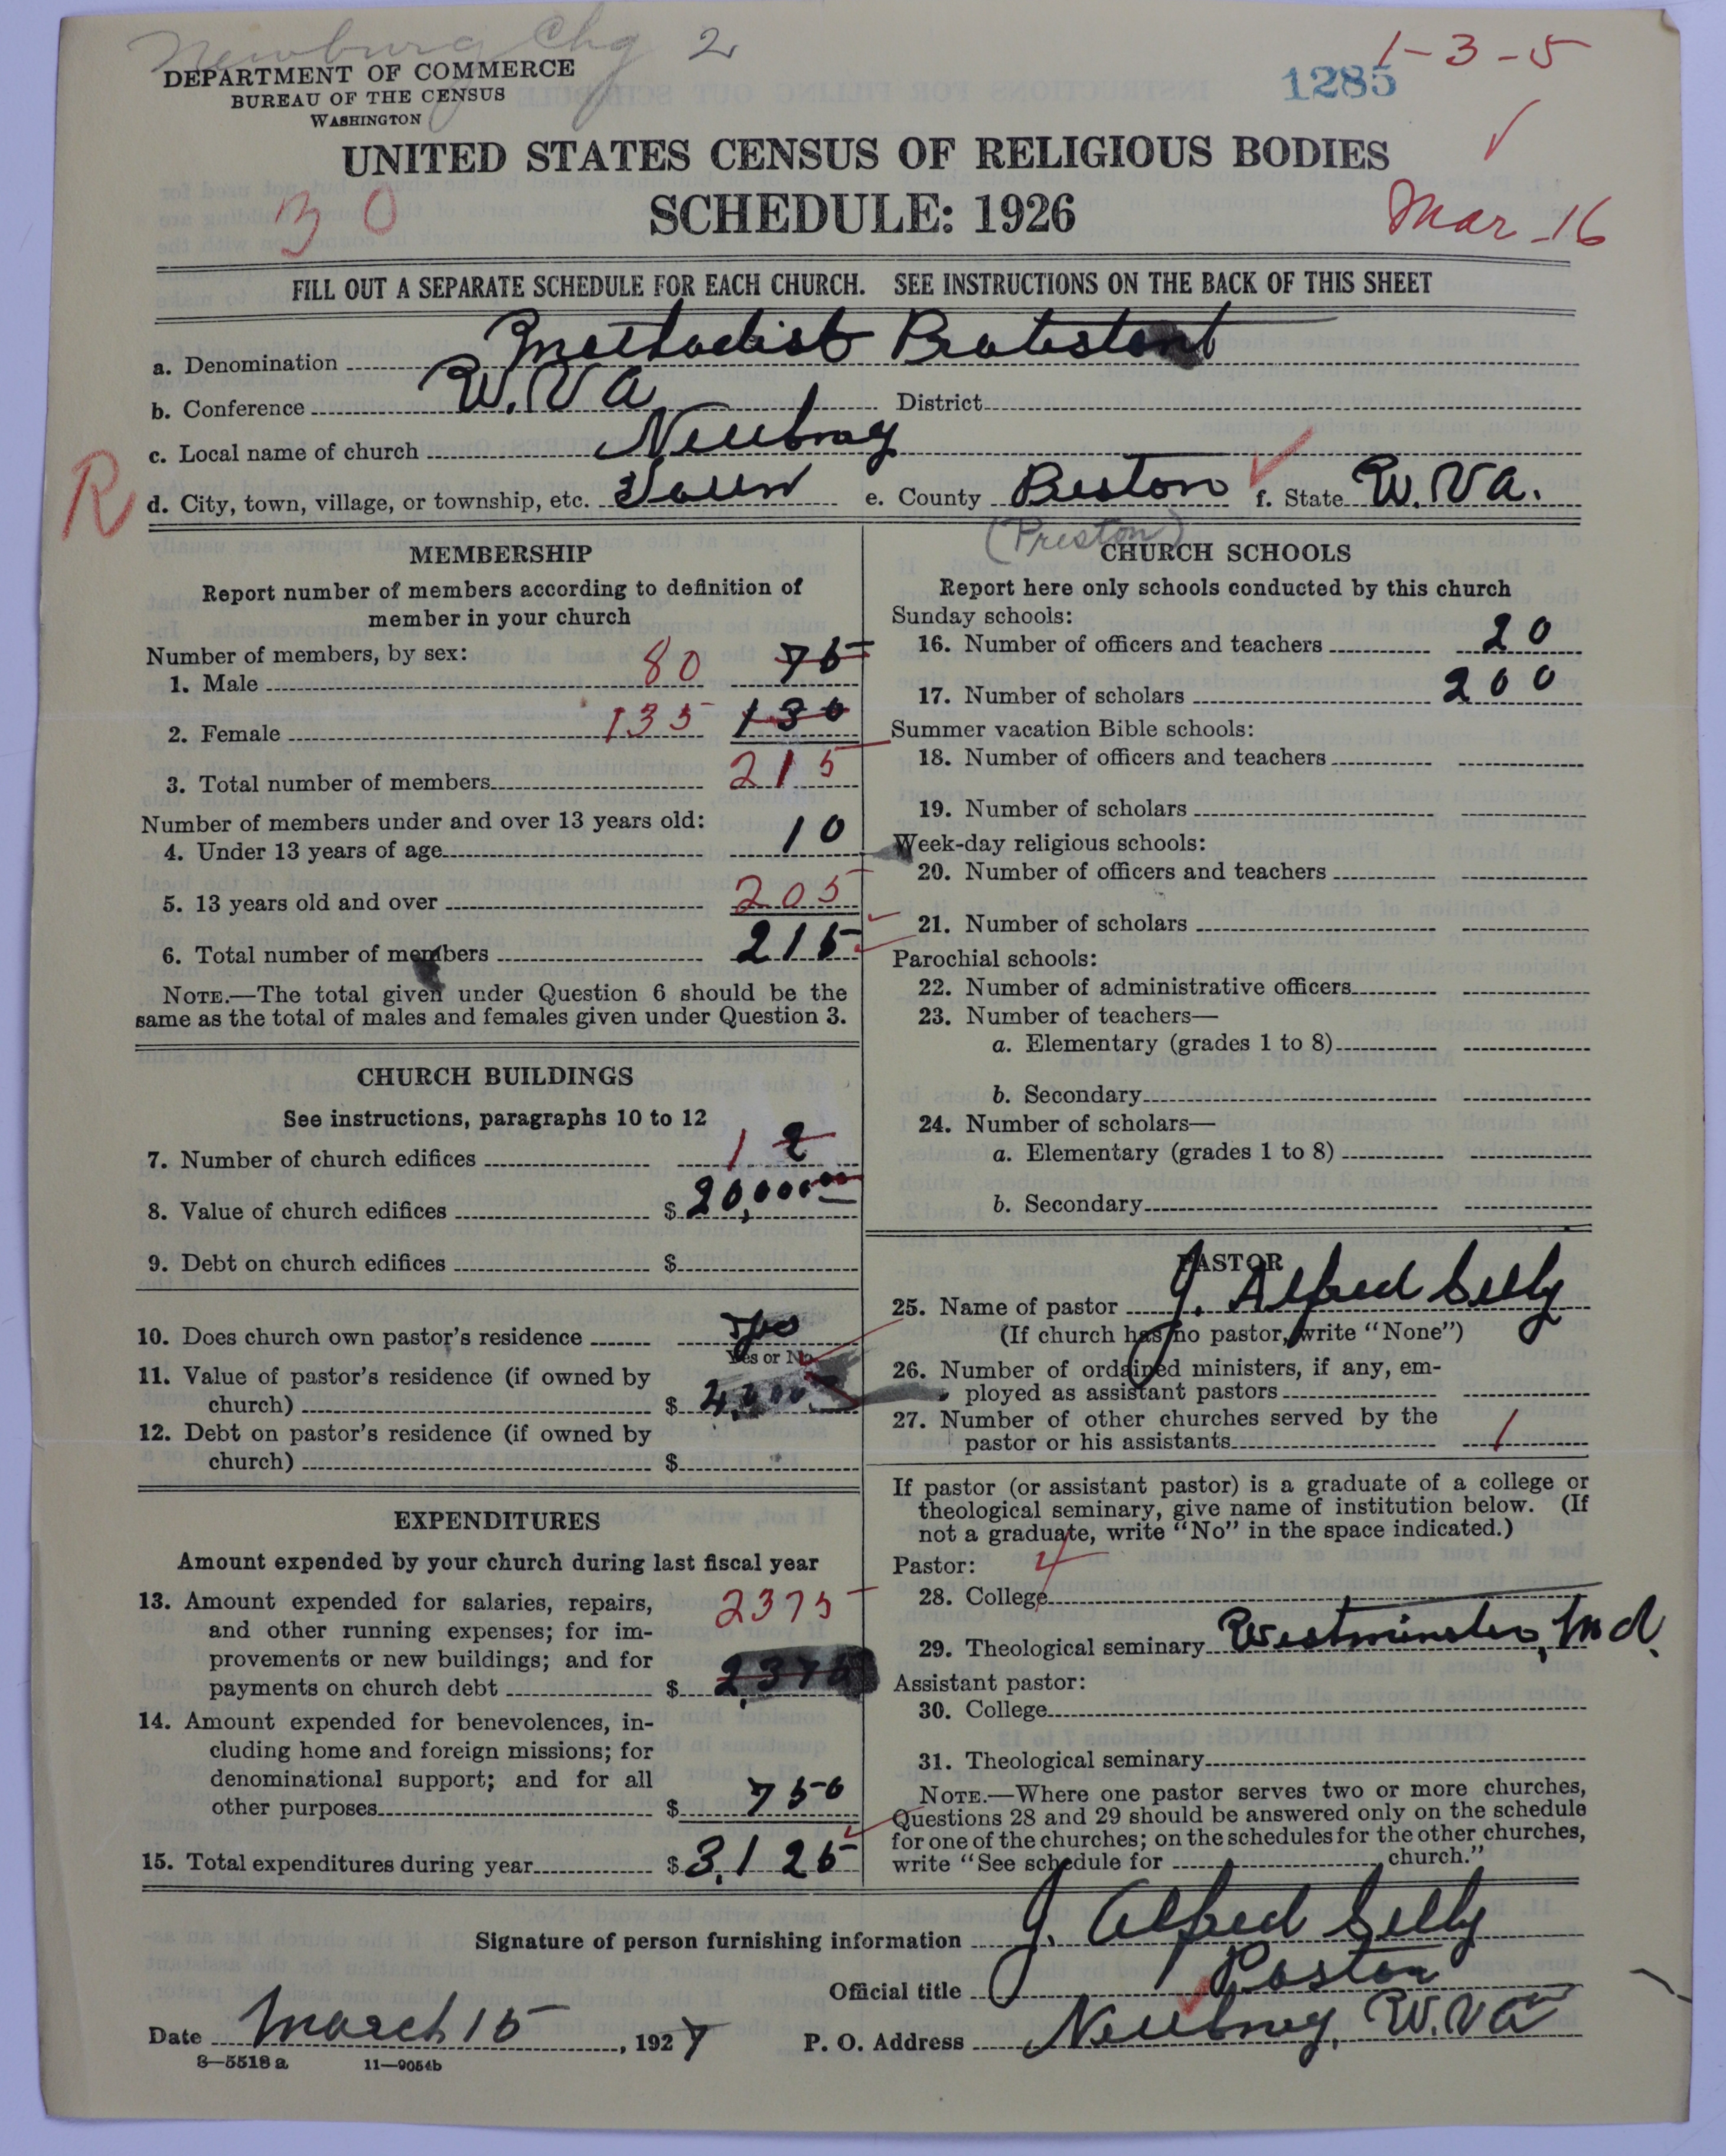 Newburg Chg 2
1-3-5
DEPARTMENT OF COMMERCE
BUREAU OF THE CENSUS
WASHINGTON
1285
UNITED STATES CENSUS OF RELIGIOUS BODIES
SCHEDULE: 1926
30
Mar-16
FILL OUT A SEPARATE SCHEDULE FOR EACH CHURCH. SEE INSTRUCTIONS ON THE BACK OF THIS SHEET
a. Denomination Methodist Protestant
b. Conference W.Va District
c. Local name of church Newburg
R
d. City, town, village, or township, etc. Town e. County Preston f. State W.Va.
(Preston)
MEMBERSHIP
Report number of members according to definition of
member in your church
Number of members, by sex:
1. Male 80 75
2. Female 135 130
3. Total number of members 215
Number of members under and over 13 years old:
4. Under 13 years of age 10
5. 13 years old and over 205
6. Total number of members 215
NOTE.—The total given under Question 6 should be the
same as the total of males and females given under Question 3.
CHURCH BUILDINGS
See instructions, paragraphs 10 to 12
7. Number of church edifices 1 2
8. Value of church edifices $ 20,000.00
9. Debt on church edifices $
10. Does church own pastor's residence Yes
Yes or No
11. Value of pastor's residence (if owned by
church) $ 4,000
12. Debt on pastor's residence (if owned by
church) $
EXPENDITURES
Amount expended by your church during last fiscal year
13. Amount expended for salaries, repairs, 2375
and other running expenses; for im-
provements or new buildings; and for
payments on church debt $ 2,375
14. Amount expended for benevolences, in-
cluding home and foreign missions; for
denominational support; and for all
other purposes $ 750
15. Total expenditures during year $ 3,125
CHURCH SCHOOLS
Report here only schools conducted by this church
Sunday schools:
16. Number of officers and teachers 20
17. Number of scholars 200
Summer vacation Bible schools:
18. Number of officers and teachers
19. Number of scholars
Week-day religious schools:
20. Number of officers and teachers
21. Number of scholars
Parochial schools:
22. Number of administrative officers
23. Number of teachers—
a. Elementary (grades 1 to 8)
b. Secondary
24. Number of scholars—
a. Elementary (grades 1 to 8)
b. Secondary
PASTOR
25. Name of pastor J. Alfred Selby
(If church has no pastor, write "None")
26. Number of ordained ministers, if any, em-
ployed as assistant pastors
27. Number of other churches served by the
pastor or his assistants 1
If pastor (or assistant pastor) is a graduate of a college or
theological seminary, give name of institution below. (If
not a graduate, write "No" in the space indicated.)
Pastor: 4
28. College
29. Theological seminary Westminster, Md.
Assistant pastor:
30. College
31. Theological seminary
NOTE.—Where one pastor serves two or more churches,
Questions 28 and 29 should be answered only on the schedule
for one of the churches; on the schedules for the other churches,
write "See schedule for church."
Signature of person furnishing information J. Alfred Selby
Official title Pastor
Date March 15, 1927 P. O. Address Newburg, W.Va
8—5518 a 11—9054b